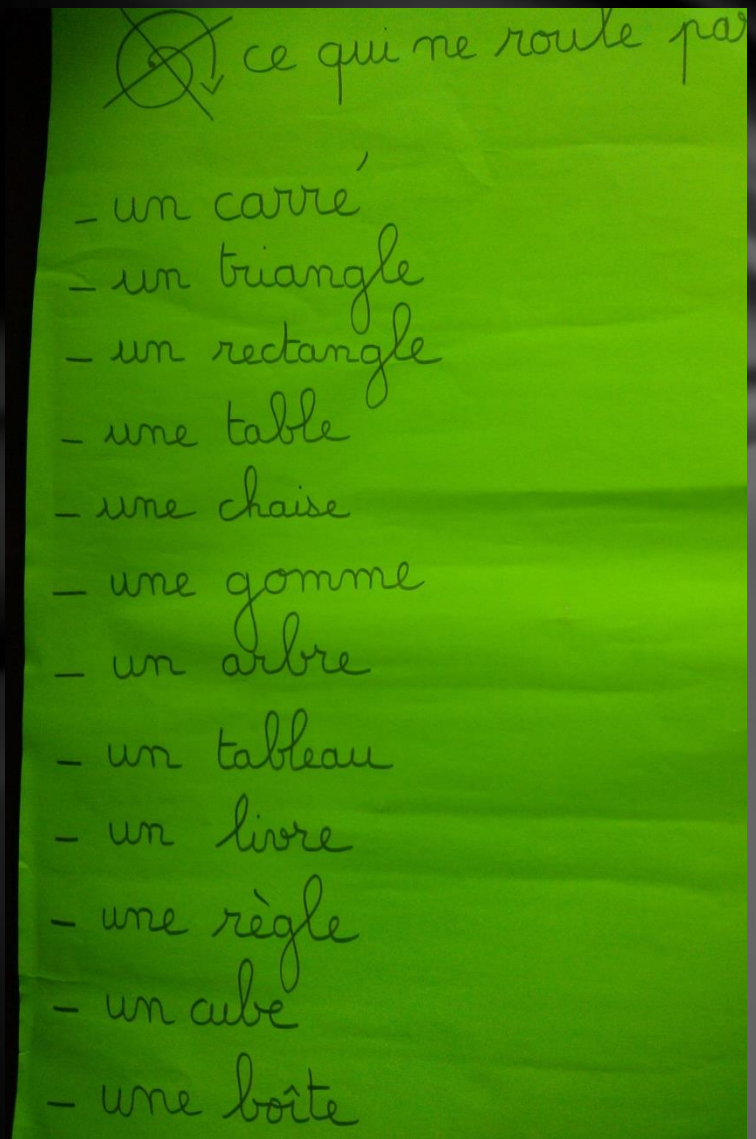 ce qui ne roule pas
- un carré
- un triangle
- un rectangle
- une table
- une chaise
- une gomme
- un arbre
- un tableau
- un livre
- une règle
- un cube
- une boîte